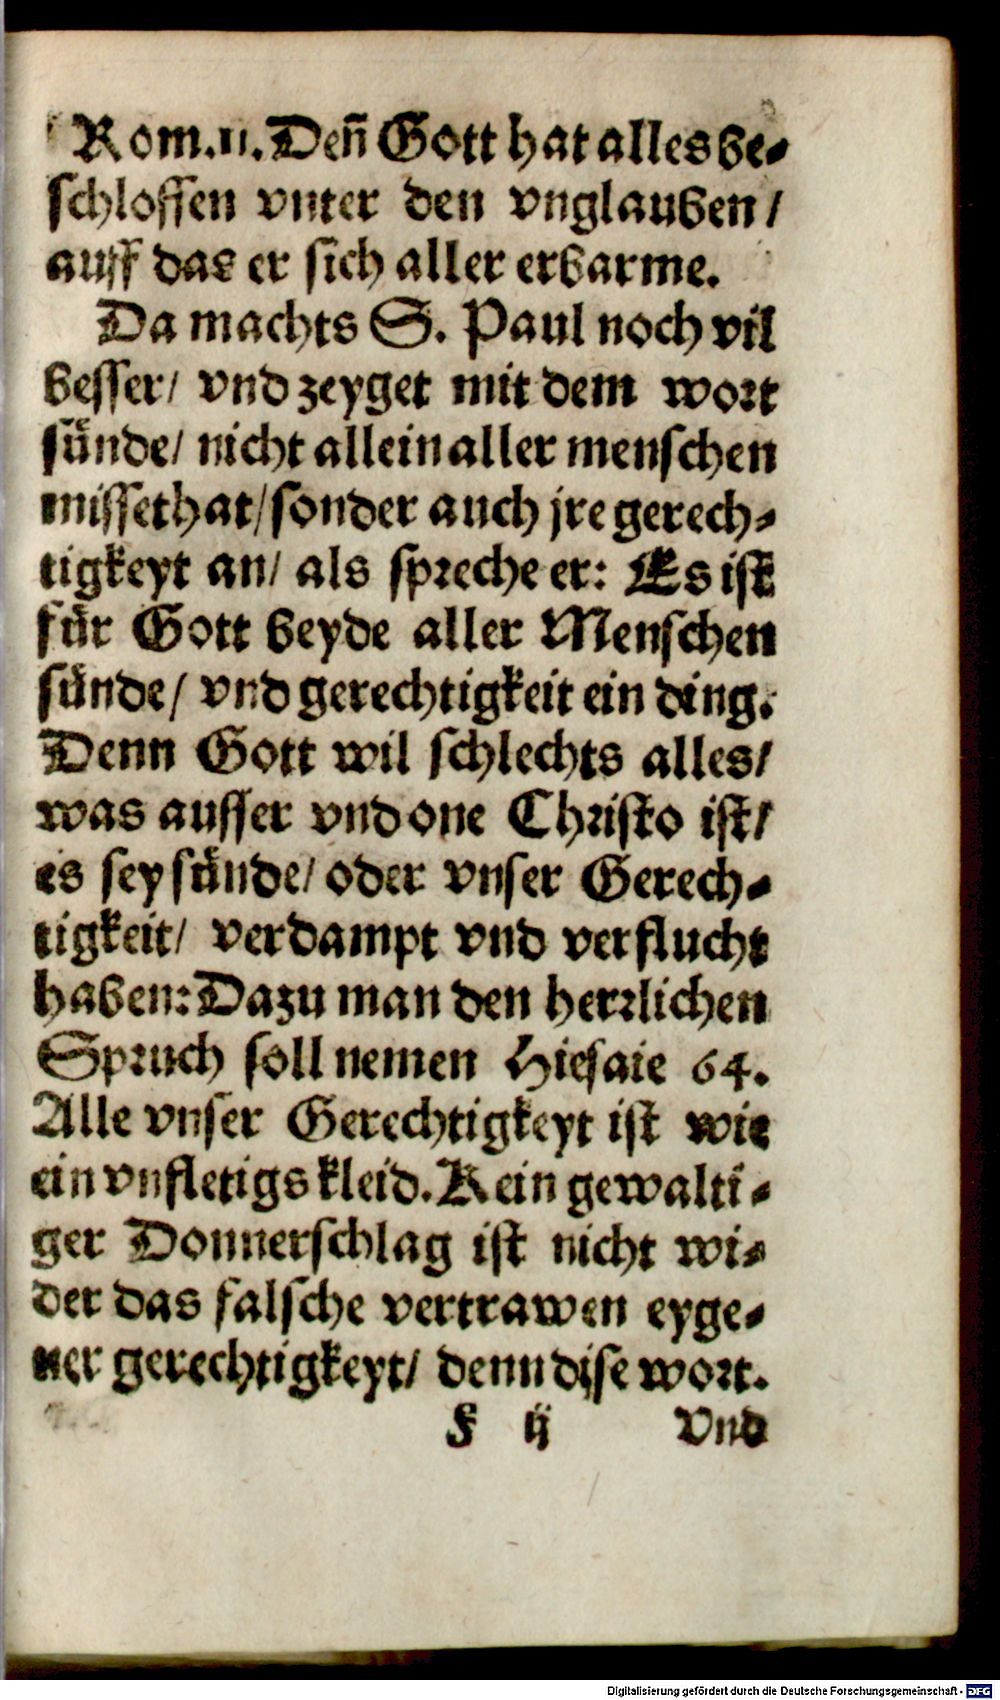 Rom.11. Deñ Gott hat alles be-
schlossen vnter den vnglauben/
auff das er sich aller erbarme.
Da machts S. Paul noch vil
besser/ vnd zeyget mit dem wort
sünde/ nicht allein aller menschen
missethat/ sonder auch jre gerech-
tigkeyt an/ als spreche er: Es ist
für Gott beyde aller Menschen
sünde/ vnd gerechtigkeit ein ding.
Denn Gott wil schlechts alles/
was ausser vnd one Christo ist/
es sey sünde/ oder vnser Gerech-
tigkeit/ verdampt vnd verflucht
haben: Dazu man den herrlichen
Spruch soll nemen Hiesaie 64.
Alle vnser Gerechtigkeyt ist wie
ein vnfletigs kleid. Kein gewalti-
ger Donnerschlag ist nicht wi-
der das falsche vertrawen eyge-
ner gerechtigkeyt/ denn dise wort.
F ij Vnd
Digitalisierung gefördert durch die Deutsche Forschungsgemeinschaft - DFG